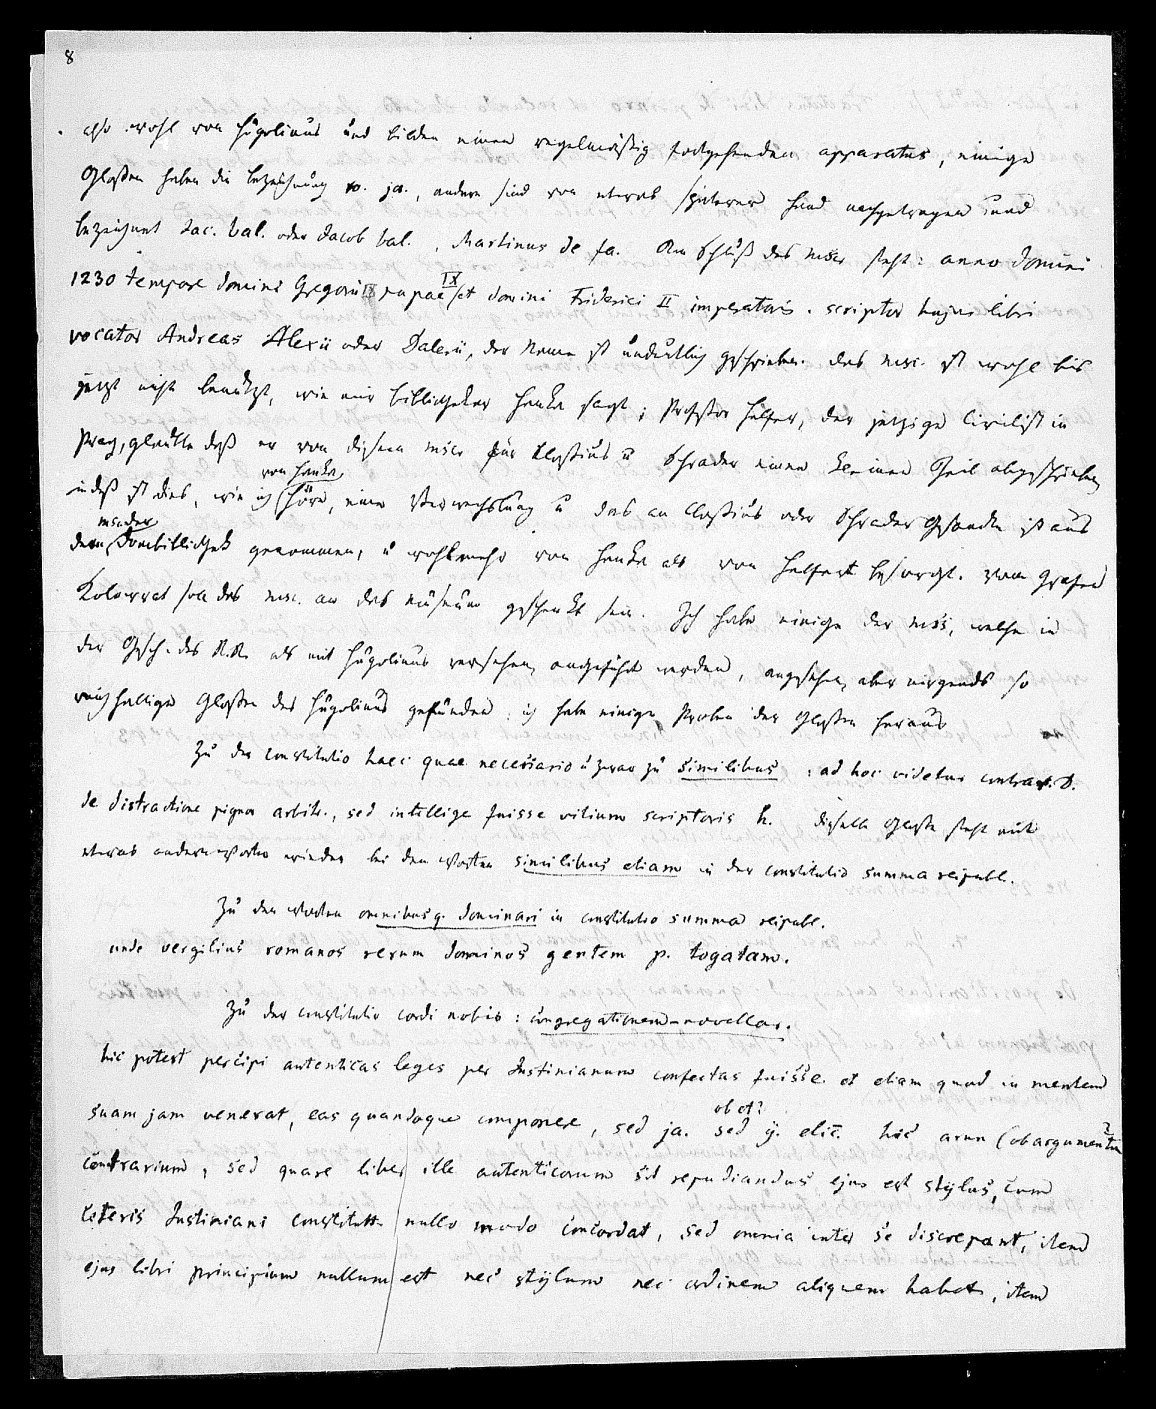 8
also wohl von Hugolinus und bilden einen regelmäßig fortgehenden apparatus, einige
Glossen haben die bezeichnung io. ja., andere sind von etwas späterer hand nachgetragen und
bezeichnet Jac. bal. oder Jacob bal., Martinus de fa. Am Schluß des mscr steht: anno domini
1230 tempore domini Gregorii IX papae et domini Friderici II imperatoris. scriptor hujus libri
IX
vocator Andreas Alexii oder Dalexii, der Name ist undeutlich geschrieben. das msc. ist wohl bis
jetzt nicht benützt, wie mir bibliothekar Hanka sagt; Professor Helfert, der jetzige Civilist in
Prag, glaubte daß er von diesem mscr für Clossius u Schrader einen kleinen Theil abgeschrieben
von Hanka
indeß ist dies, wie ich höre, eine Verwechslung u das an Clossius oder Schrader Gesandte ist aus
mscder
dem Dombibliothek genommen, u wohl mehr von Hanka als von Helfert besorgt. vom Grafen
Kolowrat soll das msc. an das museum geschenkt sein. Ich habe einige der mss, welche in
der Gesch. des R.R. als mit Hugolinus versehen angeführt werden, angesehen, aber nirgends so
reichhaltige Glossen des Hugolinus gefunden; ich habe einige Proben der Glossen heraus
Zu der constitutio haec quae necessario u zwar zu similibus : ad hoc videtur contra D.
de distractione pignor arbitr., sed intellige fuisse vitium scriptoris h. dieselbe Glosse steht mit
etwas andern Worten wieder bei den Worten similibus etiam in der constitutio summa reipubl.
Zu den Worten omnibus g. dominari in constitutio summa reipubl.
unde vergilius romanos rerum dominos gentem p. togatam.
Zu der constitutio cordi nobis : congregationem – novellas.
hic potest percipi autenticas leges per Justinianum confectas fuisse. et etiam quod in mentem
ob ot?
suam jam venerat, eas quandoque componere, sed ja. sed y. elic. hic arum (ob argumentu
contrarium, sed quare liber ille autenticorum sit repudiandus ejus est stylus, cum
ceteris Justiniani constitutt nullo modo concordat, sed omnia inter se discrepant, item
ejus libri principium nullum est nec stylum nec ordinem aliquem habet, item